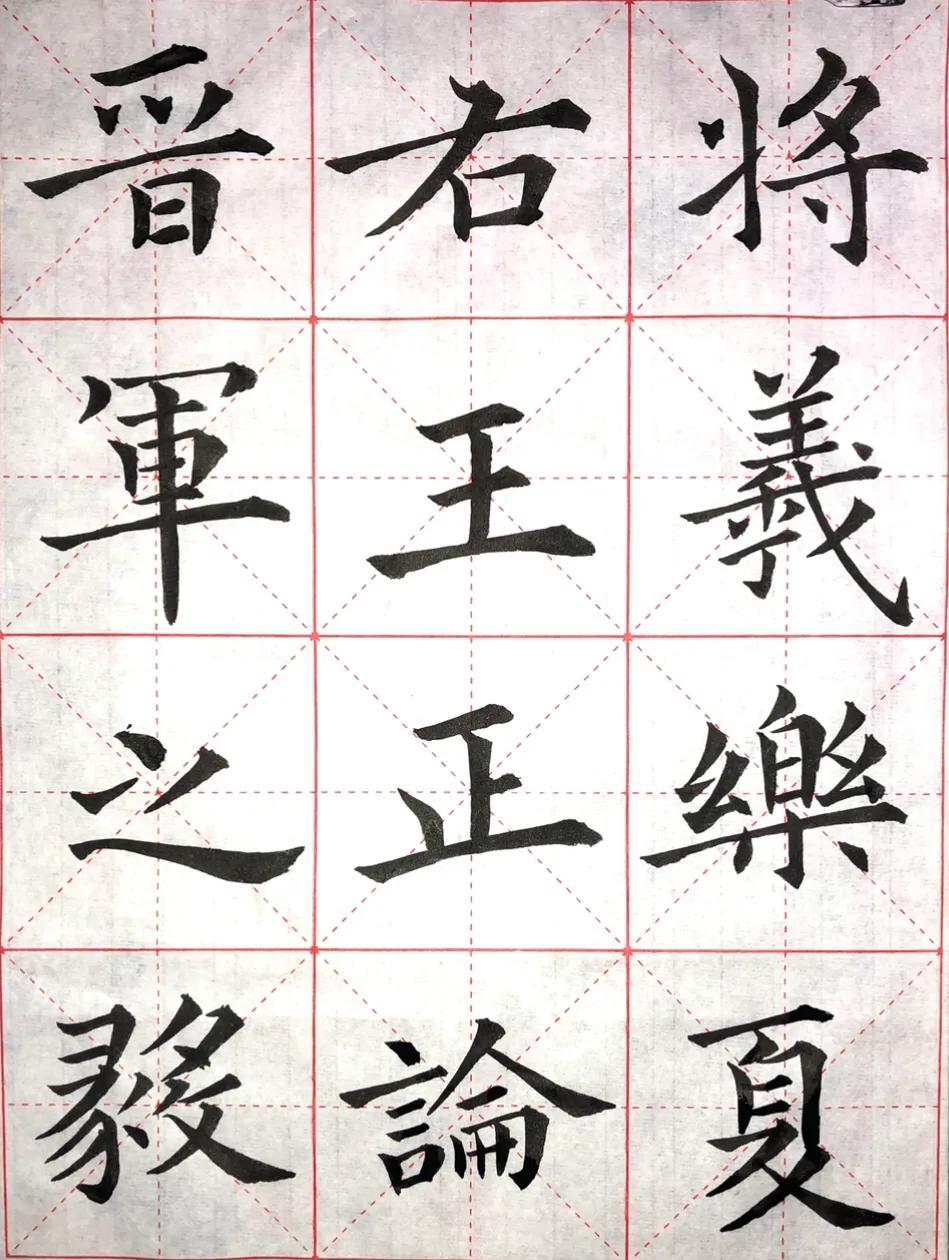 晋右将
軍王羲
之正樂
毅論夏